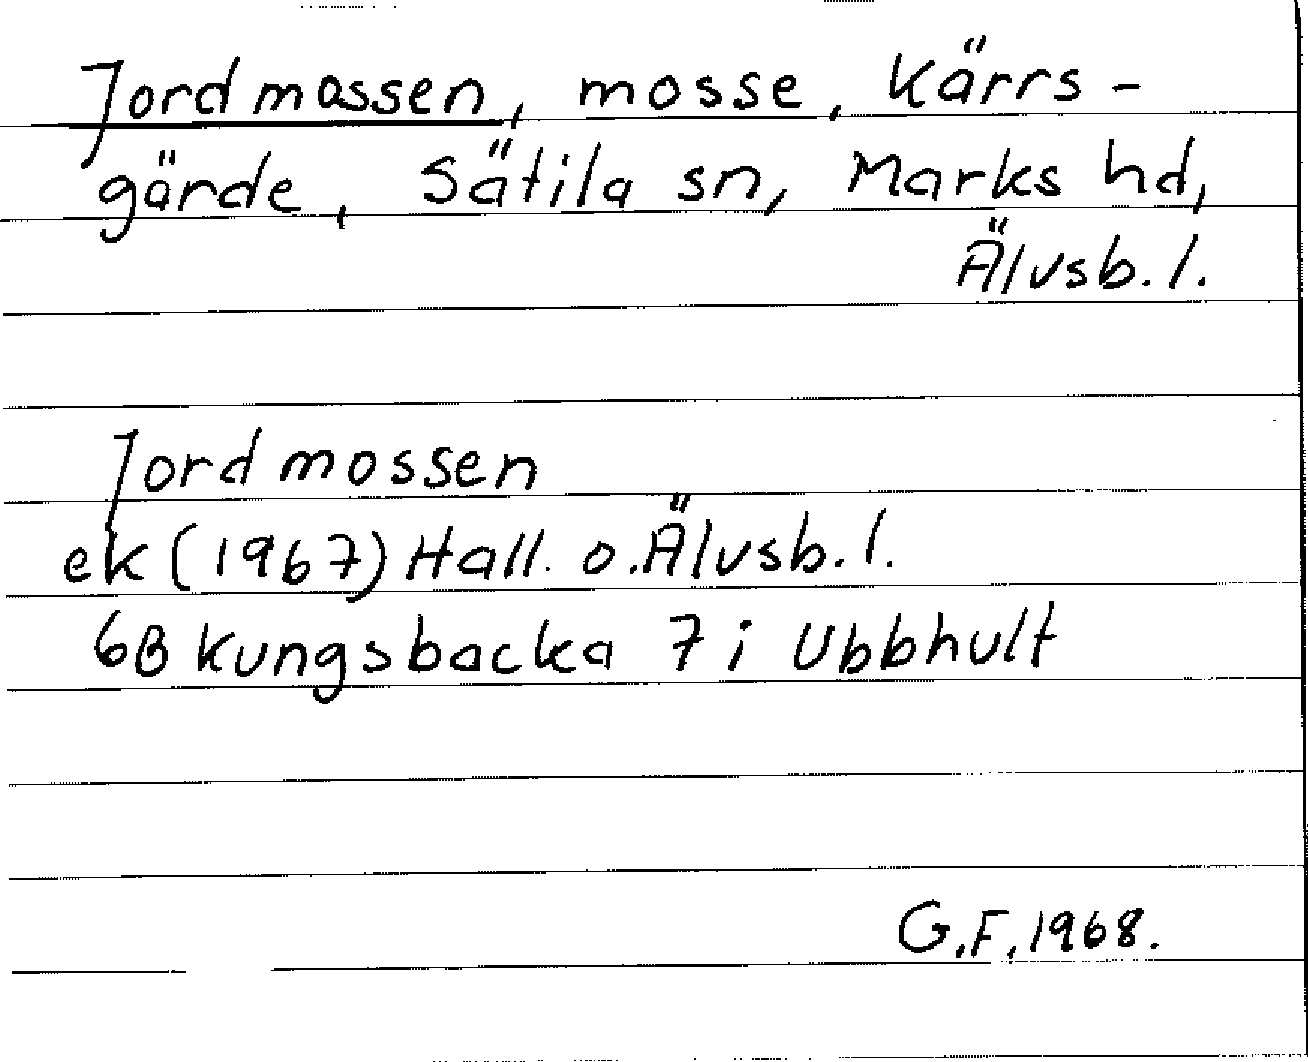 Jordmossen, mosse, Kärrs-
gärde, Sätila sn, Marks hd,
Älvsb. l.
Jordmossen
ek (1967) Hall. o. Älvsb. l.
6B Kungsbacka 7 i Ubbhult
G.F. 1968.